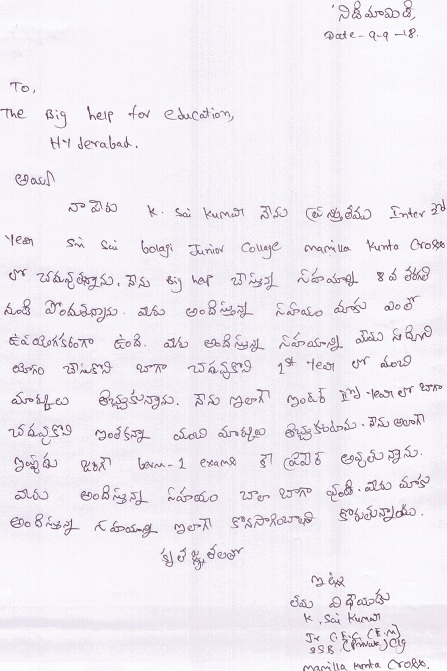 నిడిమామిడి,
Date - 9-9-18.
To,
The Big help for education,
Hyderabad.
అయ్యా
నా పేరు K. Sai Kumar నేను ప్రస్తుతము Inter 2nd
Year Sri Sai balaji Junior College mamilla Kunta Cross
లో చదువుతున్నాను. నేను Big help చేస్తున్న సహాయాన్ని 8 వ తరగతి
నుండి పొందుతున్నాను. మీరు అందిస్తున్న సహాయం మాకు ఎంతో
ఉపయోగకరంగా ఉంది. మీరు అందిస్తున్న సహాయాన్ని మేము సద్విని
యోగం చేసుకొని బాగా చదువుకొని 1st Year లో మంచి
మార్కులు తెచ్చుకున్నాను. నేను ఇలాగే ఇంటర్ IInd Year లో బాగా
చదువుకొని ఇంతకన్నా మంచి మార్కులు తెచ్చుకుంటాను. నేను అలాగే
ఇప్పుడు జరిగే term-1 exams కి ప్రిపేర్ అవుతున్నాను.
మీరు అందిస్తున్న సహాయం చాలా బాగా ఉంది. మీరు మాకు
అందిస్తున్న సహాయాన్ని ఇలాగే కొనసాగించాలని కోరుతున్నాను.
కృతజ్ఞతలతో
ఇట్లు
తమ విధేయుడు
K. Sai Kumar
Jr C.E.C (E.M)
SSB (Private) Clg
mamilla Kunta Cross.